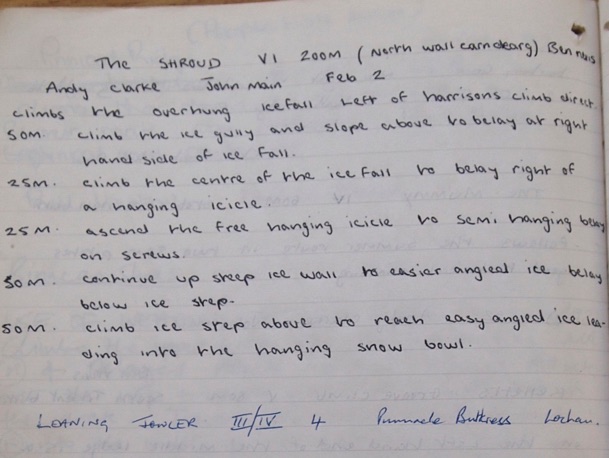 The SHROUD VI 200M (North wall carn dearg) Ben nevis
Andy Clarke John Main Feb 2
climbs the overhung icefall left of harrisons climb direct.
50M. climb the ice gully and slope above to belay at right
hand side of ice fall.
25M. climb the centre of the ice fall to belay right of
a hanging icicle.
25M. ascend the free hanging icicle to semi hanging belay
on screws.
50M. continue up steep ice wall to easier angled ice belay
below ice step.
50M. climb ice step above to reach easy angled ice lea-
ding into the hanging snow bowl.
LEANING JOWLER III/IV 4 Pinnacle Buttress Lochan.